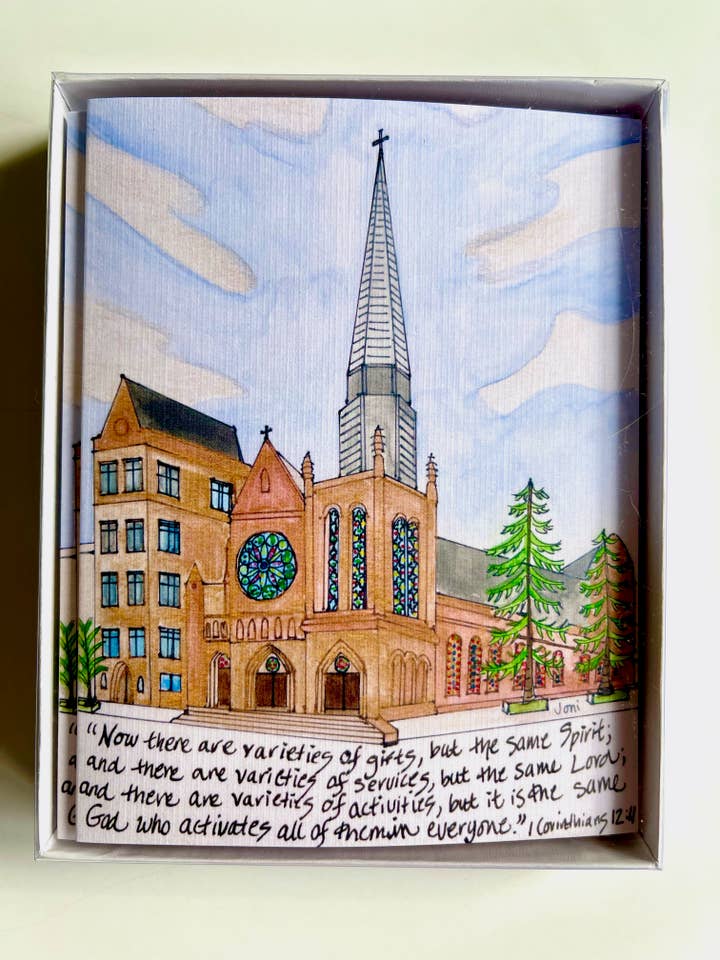 Joni
"Now there are varieties of gifts, but the same Spirit;
and there are varieties of services, but the same Lord;
and there are varieties of activities, but it is the same
God who activates all of them in everyone." 1 Corinthians 12:4